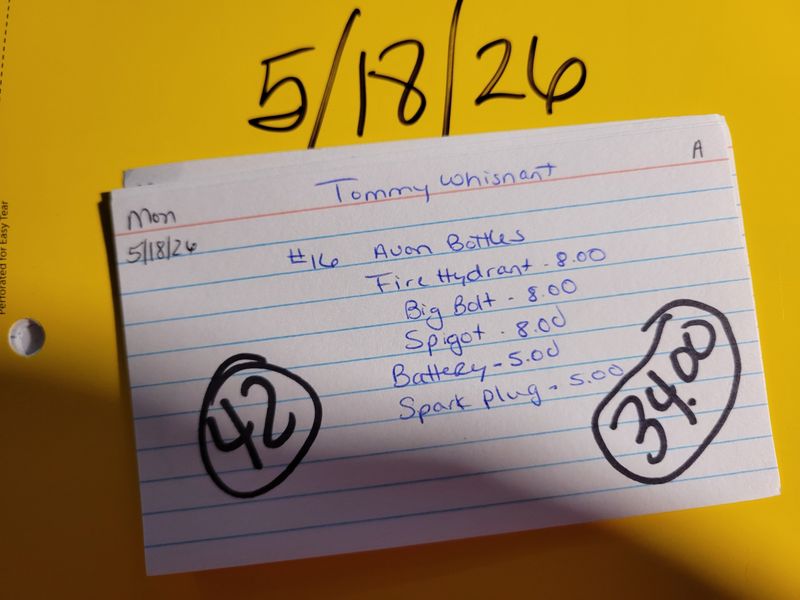 5/18/26
A
Tommy Whisnant
Mon
5/18/26
#16 Avon Bottles
Fire Hydrant - 8.00
Big Bolt - 8.00
Spigot - 8.00
Battery - 5.00
Spark plug - 5.00
42
34.00
Perforated for Easy Tear